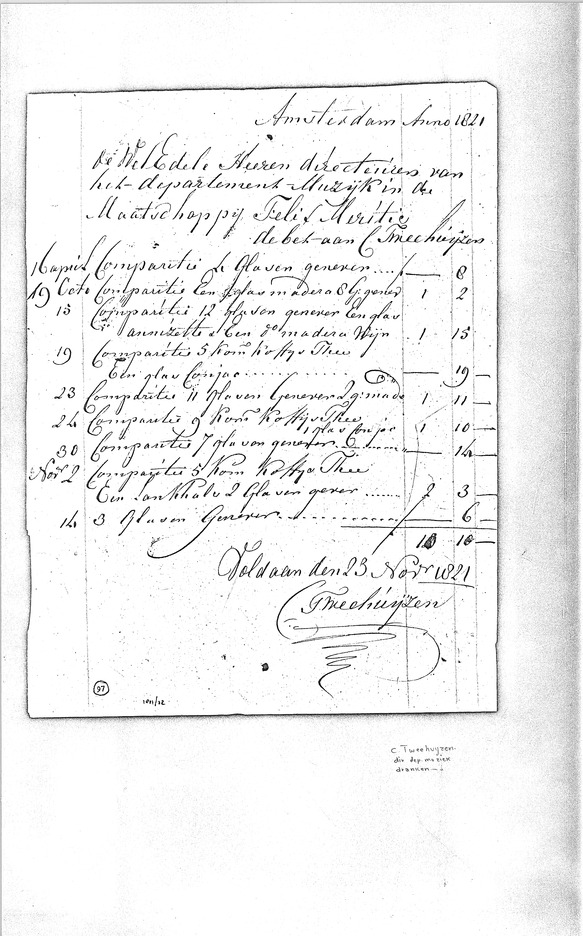 Amsterdam Anno 1821
De WelEdele Heeren directeuren van
het departement Muzijk in de
Maatschappij Felix Meritis
debet aan C Tweehuijzen
16 april Comparitie 4 Glasen genever .... 8
19 Octo Comparitie Een glas madera 8 G: genever 1 2
15 Comparitie 12 glasen genever Een glas
annizette & Een do madera Wijn 1 15 —
19 Comparitie 5 Kom Koffy & Thee
Een glas Conjac ........ — 19 —
23 Comparitie 11 Glasen Genever 2 g: made 1 11 —
24 Comparitie 9 Kom Koffy & Thee
1 glas Conjac 1 10 —
30 Comparitie 7 glasen genever ........ — 14 —
Novr 2 Comparitie 5 Kom Koffy & Thee
Een Lankhals 2 Glasen gever ...... 2 3 —
14 3 Glasen Genever ........ — 6 —
10 —
Voldaan den 23 Novr 1821
CTweehuijzen
97
C Tweehuyzen
dir dep muziek
dranken —